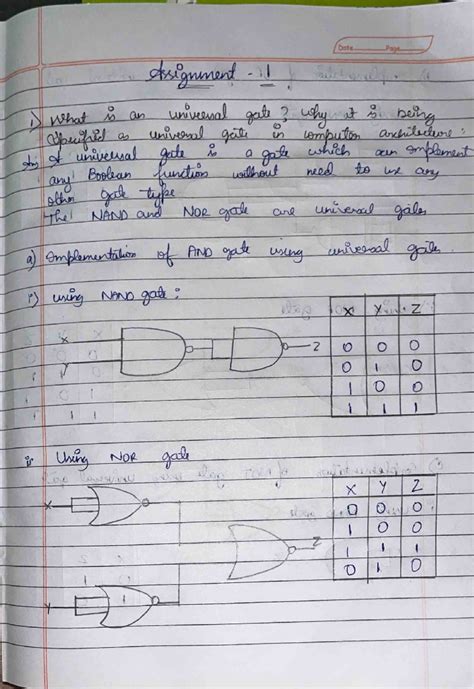 Date Page
Assignment - 1
1) What is an universal gate? Why it is being
specified as universal gate in computer architecture:
Ans A universal gate is a gate which can implement
any Boolean function without need to use any
other gate type
The NAND and NOR gate are universal gates
a) Implementation of AND gate using universal gates.
i) using NAND gate:
X Y Z
0 0 0
0 1 0
1 0 0
1 1 1
X
Y
Z
ii Using NOR gate
X Y Z
0 0 0
1 0 0
1 1 1
0 1 0
X
Z
Y